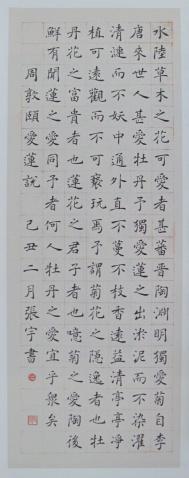 水陸草木之花可愛者甚蕃晉陶淵明獨愛菊自李
唐來世人甚愛牡丹予獨愛蓮之出淤泥而不染濯
清漣而不妖中通外直不蔓不枝香遠益清亭亭淨
植可遠觀而不可褻玩焉予謂菊花之隱逸者也牡
丹花之富貴者也蓮花之君子者也噫菊之愛陶後
鮮有聞蓮之愛同予者何人牡丹之愛宜乎衆矣
周敦頤愛蓮説 己丑二月張宇書